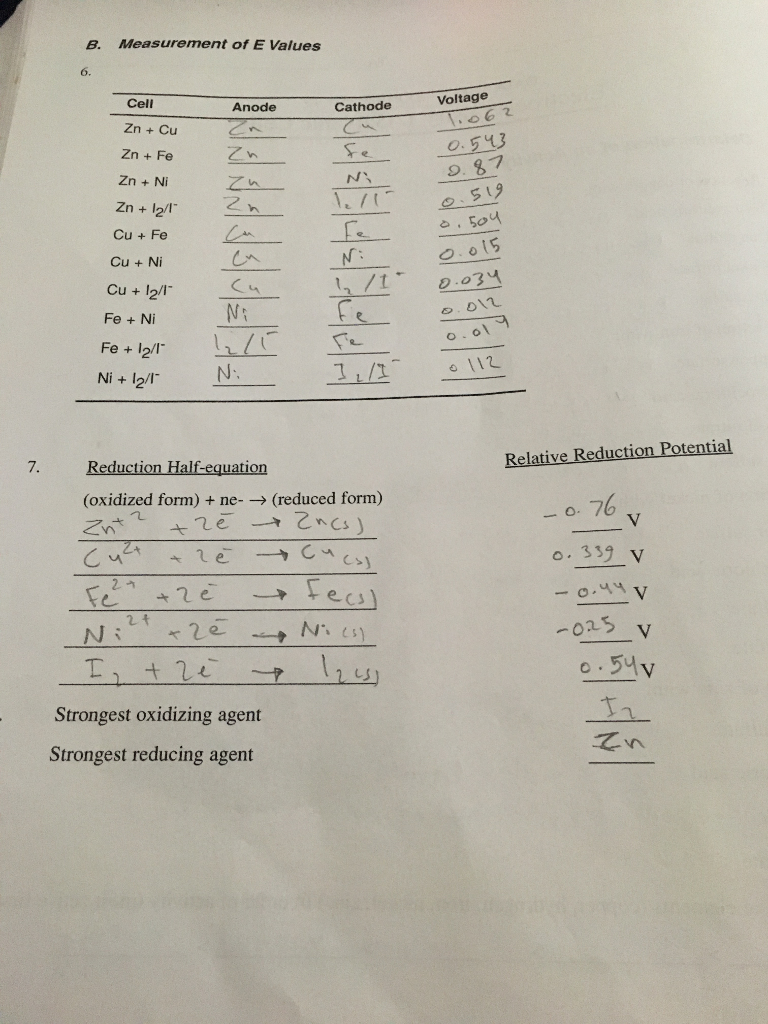 B. Measurement of E Values
6.
Cell Anode Cathode Voltage
Zn + Cu Zn Cu 1.062
Zn + Fe Zn Fe 0.543
Zn + Ni Zn Ni 0.87
Zn + I₂/I⁻ Zn I₂/I⁻ 0.519
Cu + Fe Cu Fe 0.504
Cu + Ni Cu Ni 0.015
Cu + I₂/I⁻ Cu I₂/I⁻ 0.034
Fe + Ni Ni Fe 0.012
Fe + I₂/I⁻ I₂/I⁻ Fe 0.014
Ni + I₂/I⁻ Ni I₂/I⁻ 0.112
7. Reduction Half-equation Relative Reduction Potential
(oxidized form) + ne- → (reduced form)
Zn⁺² + 2e⁻ → Zn(s) -0.76 V
Cu²⁺ + 2e⁻ → Cu(s) 0.339 V
Fe²⁺ + 2e⁻ → Fe(s) -0.44 V
Ni²⁺ + 2e⁻ → Ni(s) -0.25 V
I₂ + 2e⁻ → I₂(s) 0.54 V
Strongest oxidizing agent I₂
Strongest reducing agent Zn